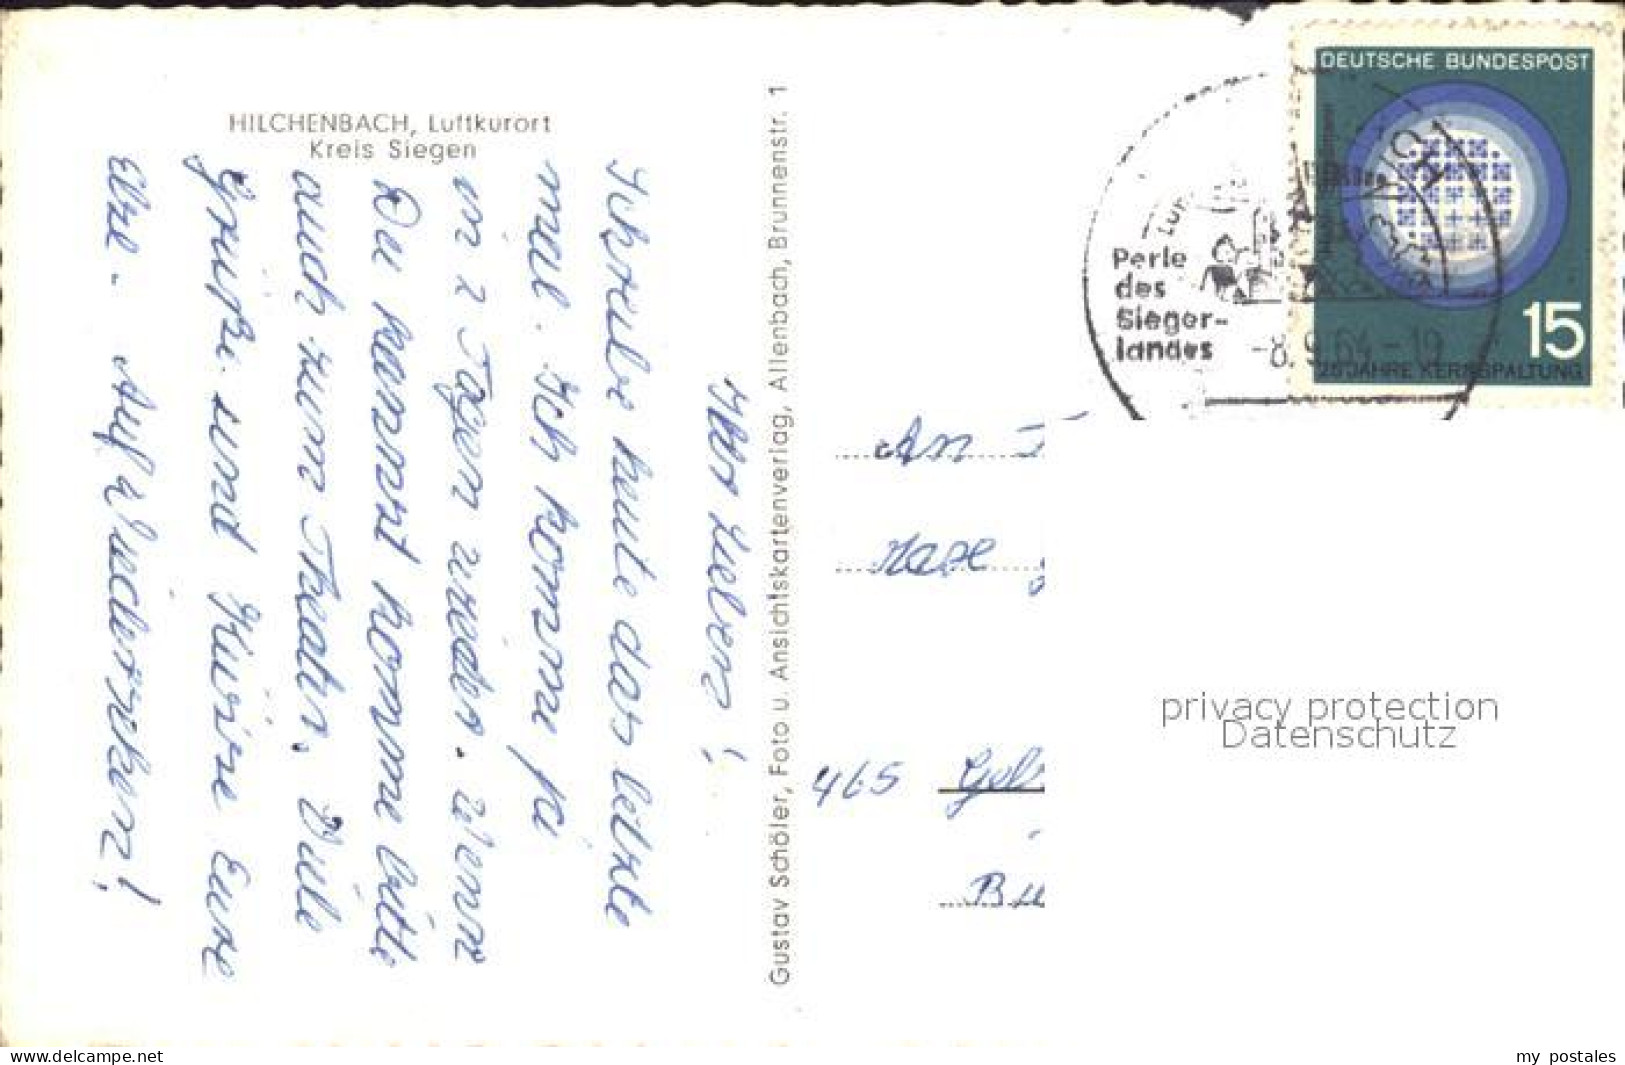 HILCHENBACH, Luftkurort
Kreis Siegen
Ihr Lieben!
Schreibe heute das letzte
mal. Ich komme ja
in 2 Tagen wieder. Wenn
Du kannst komme bitte
auch zum Theater. Viele
Grüße und Küsse Eure
Elke. Auf Wiedersehen!
Gustav Schöler, Foto u. Ansichtskartenverlag, Allenbach, Brunnenstr. 1
DEUTSCHE BUNDESPOST
15
25 JAHRE KERNSPALTUNG
Perle
des
Sieger-
landes
-8.9.64-19
An
465 Gels
privacy protection
Datenschutz
delcampe.net
my_postales